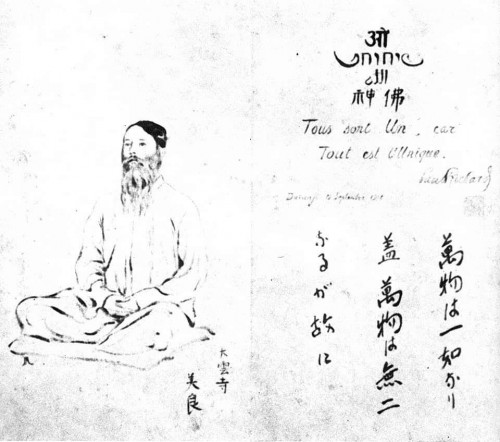 神佛
Tous sont Un, car
Tout est l'Unique.
Daiunji
萬物は一如なり
蓋萬物は無二
なるが故に
大雲寺
美良